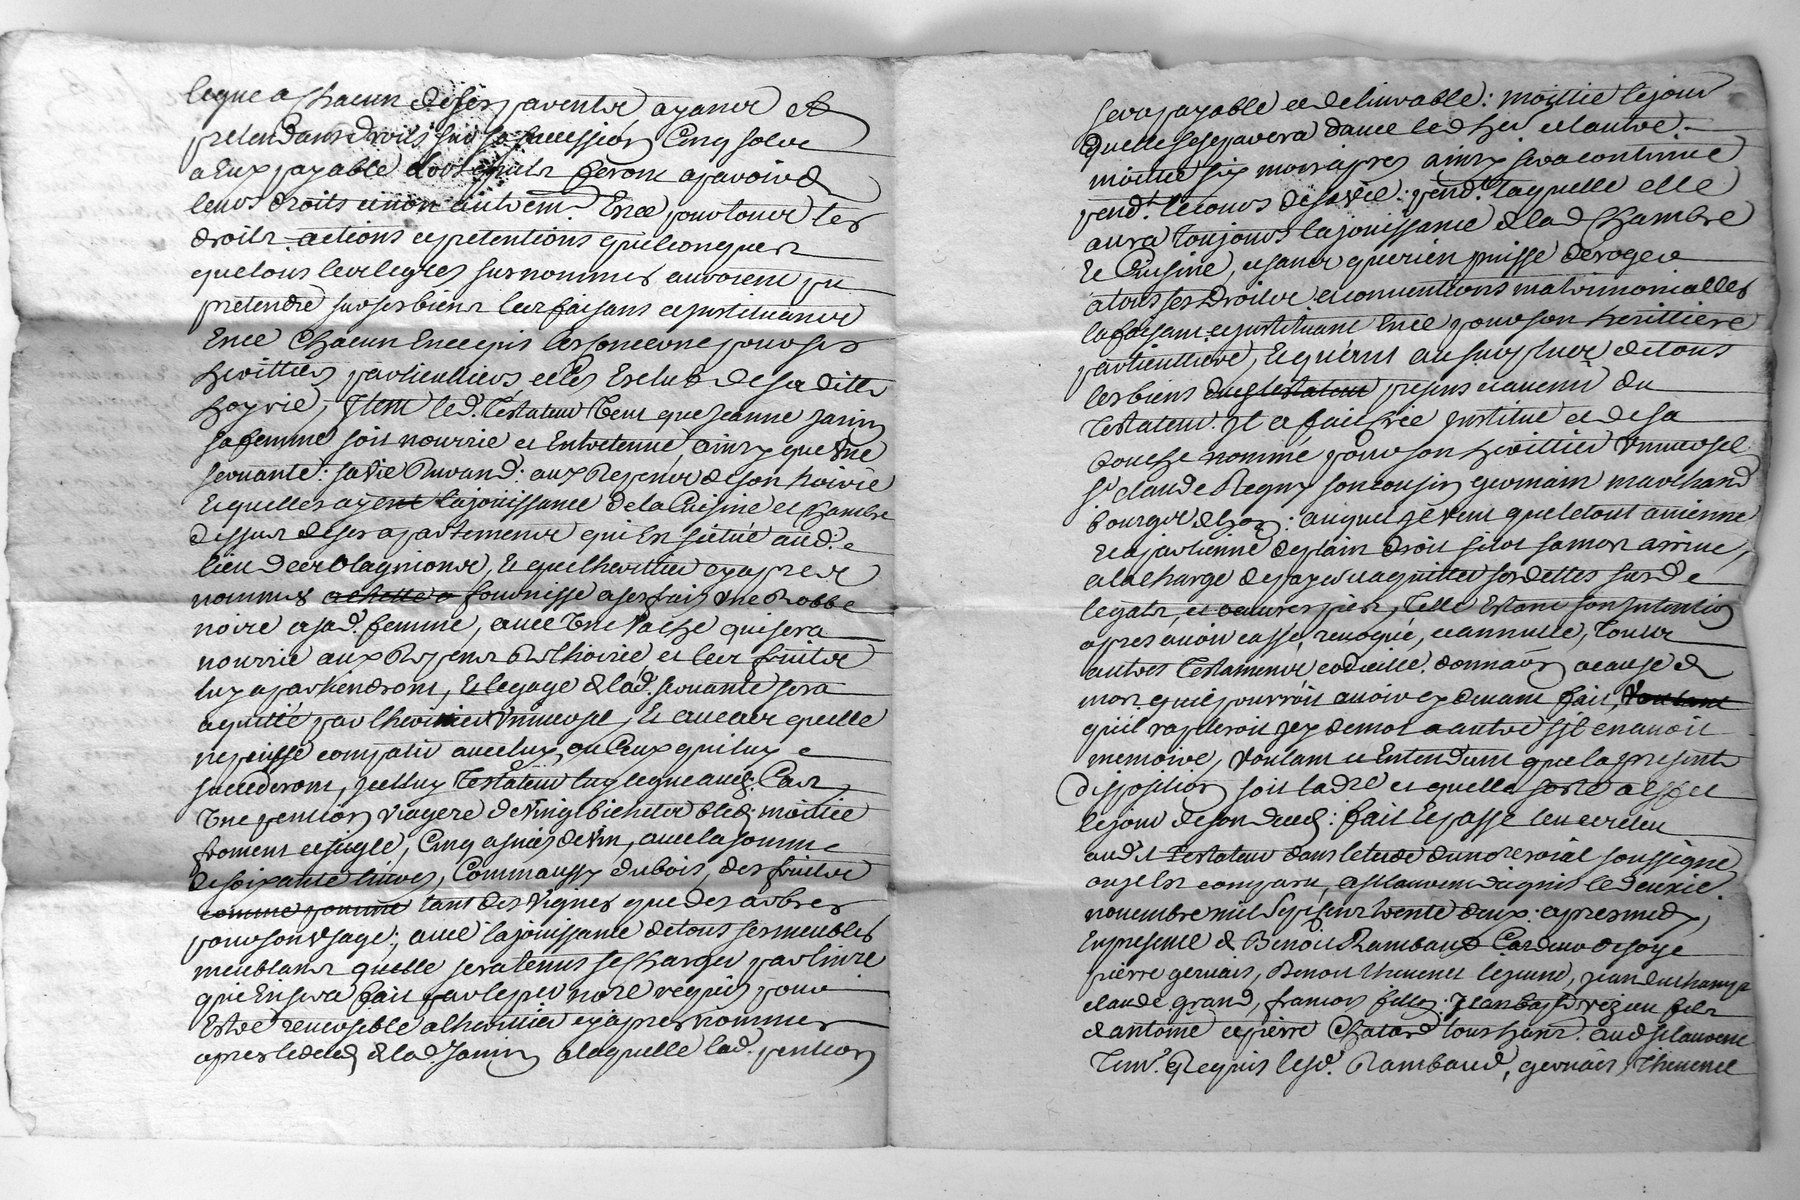 legue a Chacun de ses parents ayants et
pretendants droits sur sa succession Cinq sols
a Eux payable lors quils feront aparoir de
leurs droits et non autrem.t Et ce pour tous les
droits actions et pretentions quelconques
que tous les legués surnommes auroient pu
pretendre sur ses biens les faisans et instituants
En ce Chacun En ce qui les concerne pour ses
herittiers particulliers et les Exclud de sa ditte
hoyrie, Item led. Testateur veut que Jeanne Janin
sa femme soit nourrie et Entretenue, ainsy que une
servante: sa vie Durand: aux depens de son hoirie
Et quelles ayent la jouissance de la Cuisine et Chambre
dessus de ses apartements qui Est scitué aud.
lieu de Blagnions, Et que lherittier cy apres
nommes fournisse a ses frais une Robbe
noire a sad. femme, avec Une Vache qui sera
nourrie aux depens de lhoirie, et les fruits
luy apartiendront, Et le gage de lad. servante sera
aquitté par lherittier Universel, Et au cas quelle
ne puisse compatir avec luy, ou Ceux qui luy
succederont, led. Testateur luy legue aud. Cas
Une pention viagere de vingt bichets bled moittie
froment et seigle, Cinq asnées de vin, avec la somme
de soixante livres, Comme aussy du bois, des fruits
comme pomme tant des vignes que des arbres
pour son usage:, avec la jouissance de tous ses meubles
meublants quelle sera tenue se Charger par linvre
qui En sera fait par le per nore requis pour
Estre reversible a lherittier cy apres nommes
apres le deced de lad Janin a laquelle lad. pention
sera payable et delivrable: moittie le jour
quelle se separera davec led her et lautre
moittié six mois apres ainsy sera continué
pend.t le cours de sa vie: pend.t laquelle elle
aura toujours la jouissance de lad Chambre
Et Cuisine, et sans que rien puisse deroger
a tous ses Droits et conventions matrimonialles
la faisant et instituant En ce pour son herittiere
particulliere, Et quand au surplus de tous
les biens dud testateur presens et avenir du
Testateur Il a fait crée institue et de sa
bouche nommé pour son herittier Universel
sr claude Regny son cousin germain marchand
bourgeois de Lyon: auquel Il veut que le tout avienne
Et apartienne de plain droit sitot sa mort arrivé,
a la charge de payer et aquitter ses dettes susd
legats, et œuvres pies, Telle Estant son intention
apres avoir cassé, revoqué, et annullé, Touts
autres Testaments codicille, donnaōn a cause de
mort quil pourroit avoir cy devant fait, voulant
quil raporteroit icy de mot a autre sil en avoit
memoire, Voulant et Entendant que la presente
disposition soit ladre et quelle sorte a effet
le jour de son deced: fait Et passé leu et releu
aud.t Testateur dans letude du nore roial soussigné
ou jl Est comparu, a st laurent dagnis le deuxie.
novembre mil sept cent trente deux: apres midy,
En presence de Benoit Rambaud Cardeur de soye
pierre gervais, Benoit thevenet le jeune, jean duchamp
claude grand, francois fillon, jean bap.t vezeau fils
de antoine et pierre Chatard tous hans aud st laurent
Tem.s Requis lesd. Rambaud, gervais, Thevenet